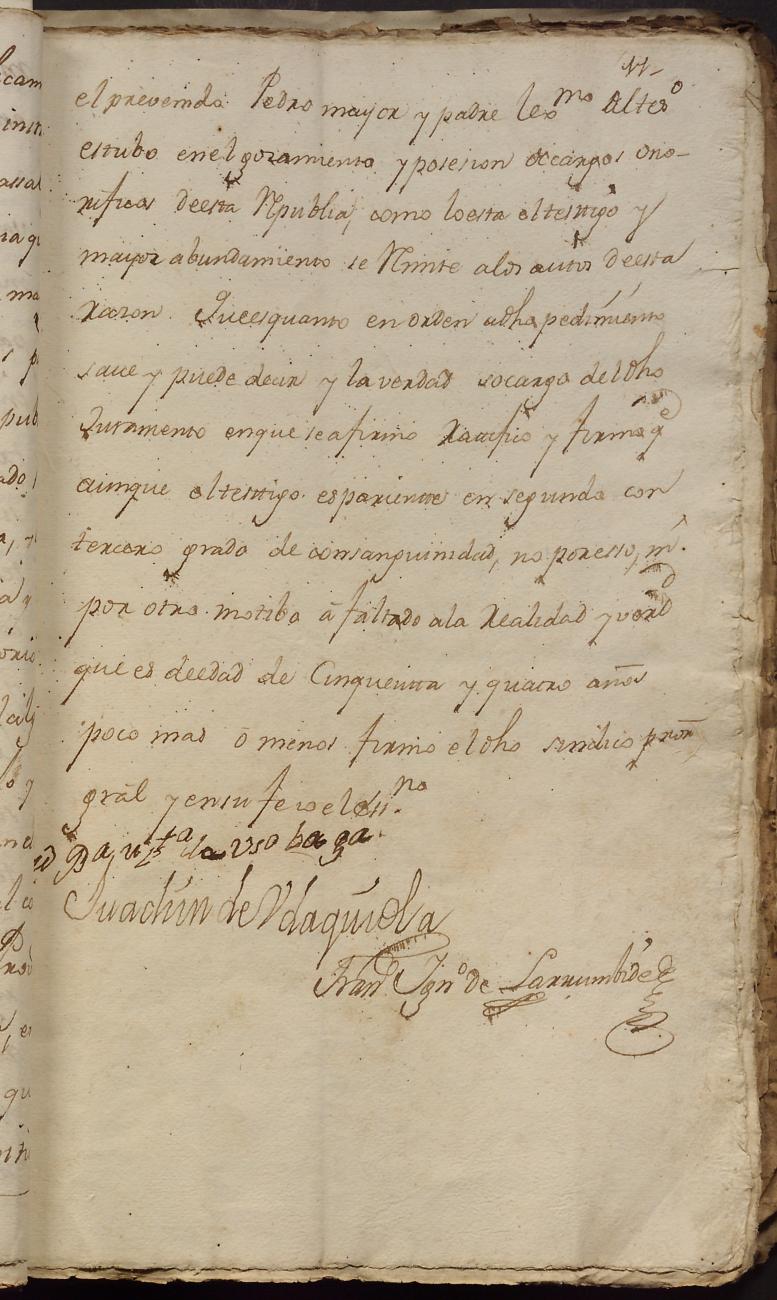 el prevenido Pedro mayor y padre lexmo del tesº
estubo en el gozamiento y posesion de cargos ono-
rificos de esta Republia, como lo esta el testigo y
mayor abundamiento se Rimite a los autos de esta
Razon. Que es quanto en orden a dho pedimiento
save y puede decir y la verdad so cargo del dho
Juramento en que se afirmo Ratifico y firmó q̄
aunque el testigo es pariente en segundo con
tercero grado de consanguinidad, no por esso, ni
por otro motibo á faltado a la Realidad y verd
que es de edad de Cinquenta y quatro años
poco mas ó menos firmo el dho sindico pror
gral y en su fe io el essno
Bauta de Usobaga
Juachin de Vdaquiola
Frano Ignº de Larrumbide